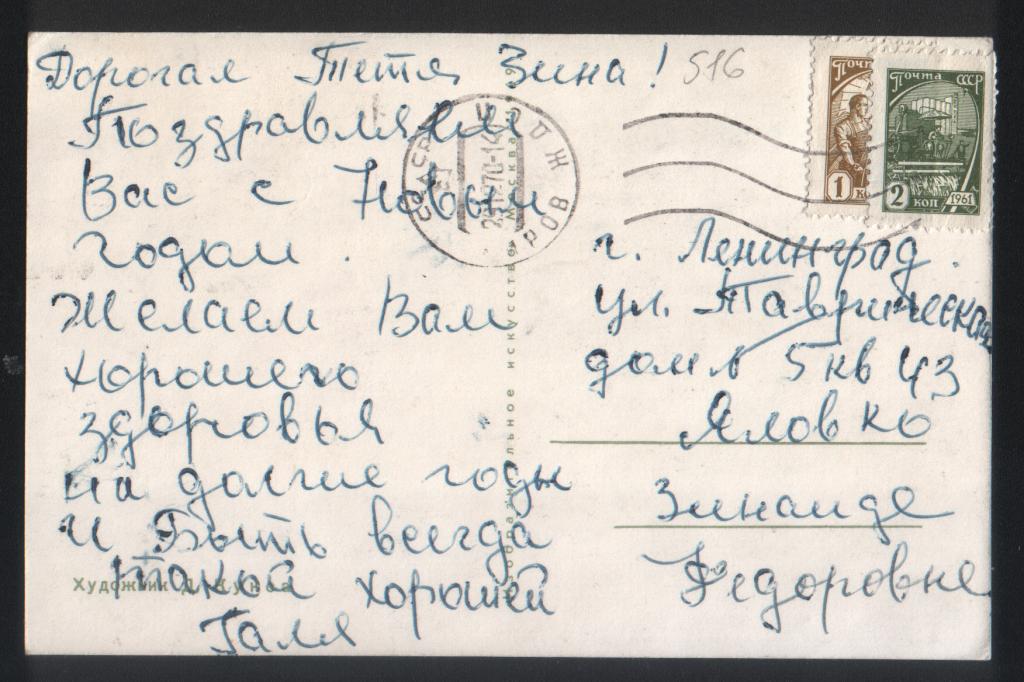 Дорогая Тетя Зина!
516
Поздравляем
Вас с Новым
годом.
Желаем Вам
хорошего
здоровья
на долгие годы
и Быть всегда
такой хорошей
Галя
г. Ленинград.
ул. Таврическая
дом 5 кв 43
Яловко
Зинаиде
Федоровне
Почта
1 к
Почта СССР
2 коп 1961
Изобразительное искусство Москва
Художник